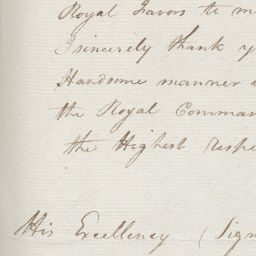 Royal Favors to m
I sincerely thank y
Handsome manner
the Royal Comman
the Highest respe
His Excellency (Sign